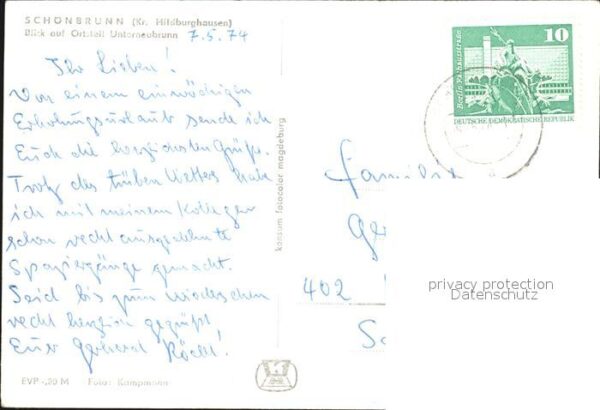 SCHÖNBRUNN (Kr. Hildburghausen)
Blick auf Ortsteil Unterneubrunn
7.5.74
Ihr Lieben!
Von einem einwöchigen
Erholungsurlaub sende ich
Euch die herzlichsten Grüße.
Trotz des trüben Wetters habe
ich mit meinem Kollegen
schon recht ausgedehnte
Spaziergänge gemacht.
Seid bis zum Wiedersehen
recht herzlich gegrüßt,
Euer Gerhard
EVP -,20 M Foto: Kampmann
kossum fotocolor magdeburg
10
Berlin, Rathausstraße
DEUTSCHE DEMOKRATISCHE REPUBLIK
Familie
Ge
402
privacy protection
Datenschutz